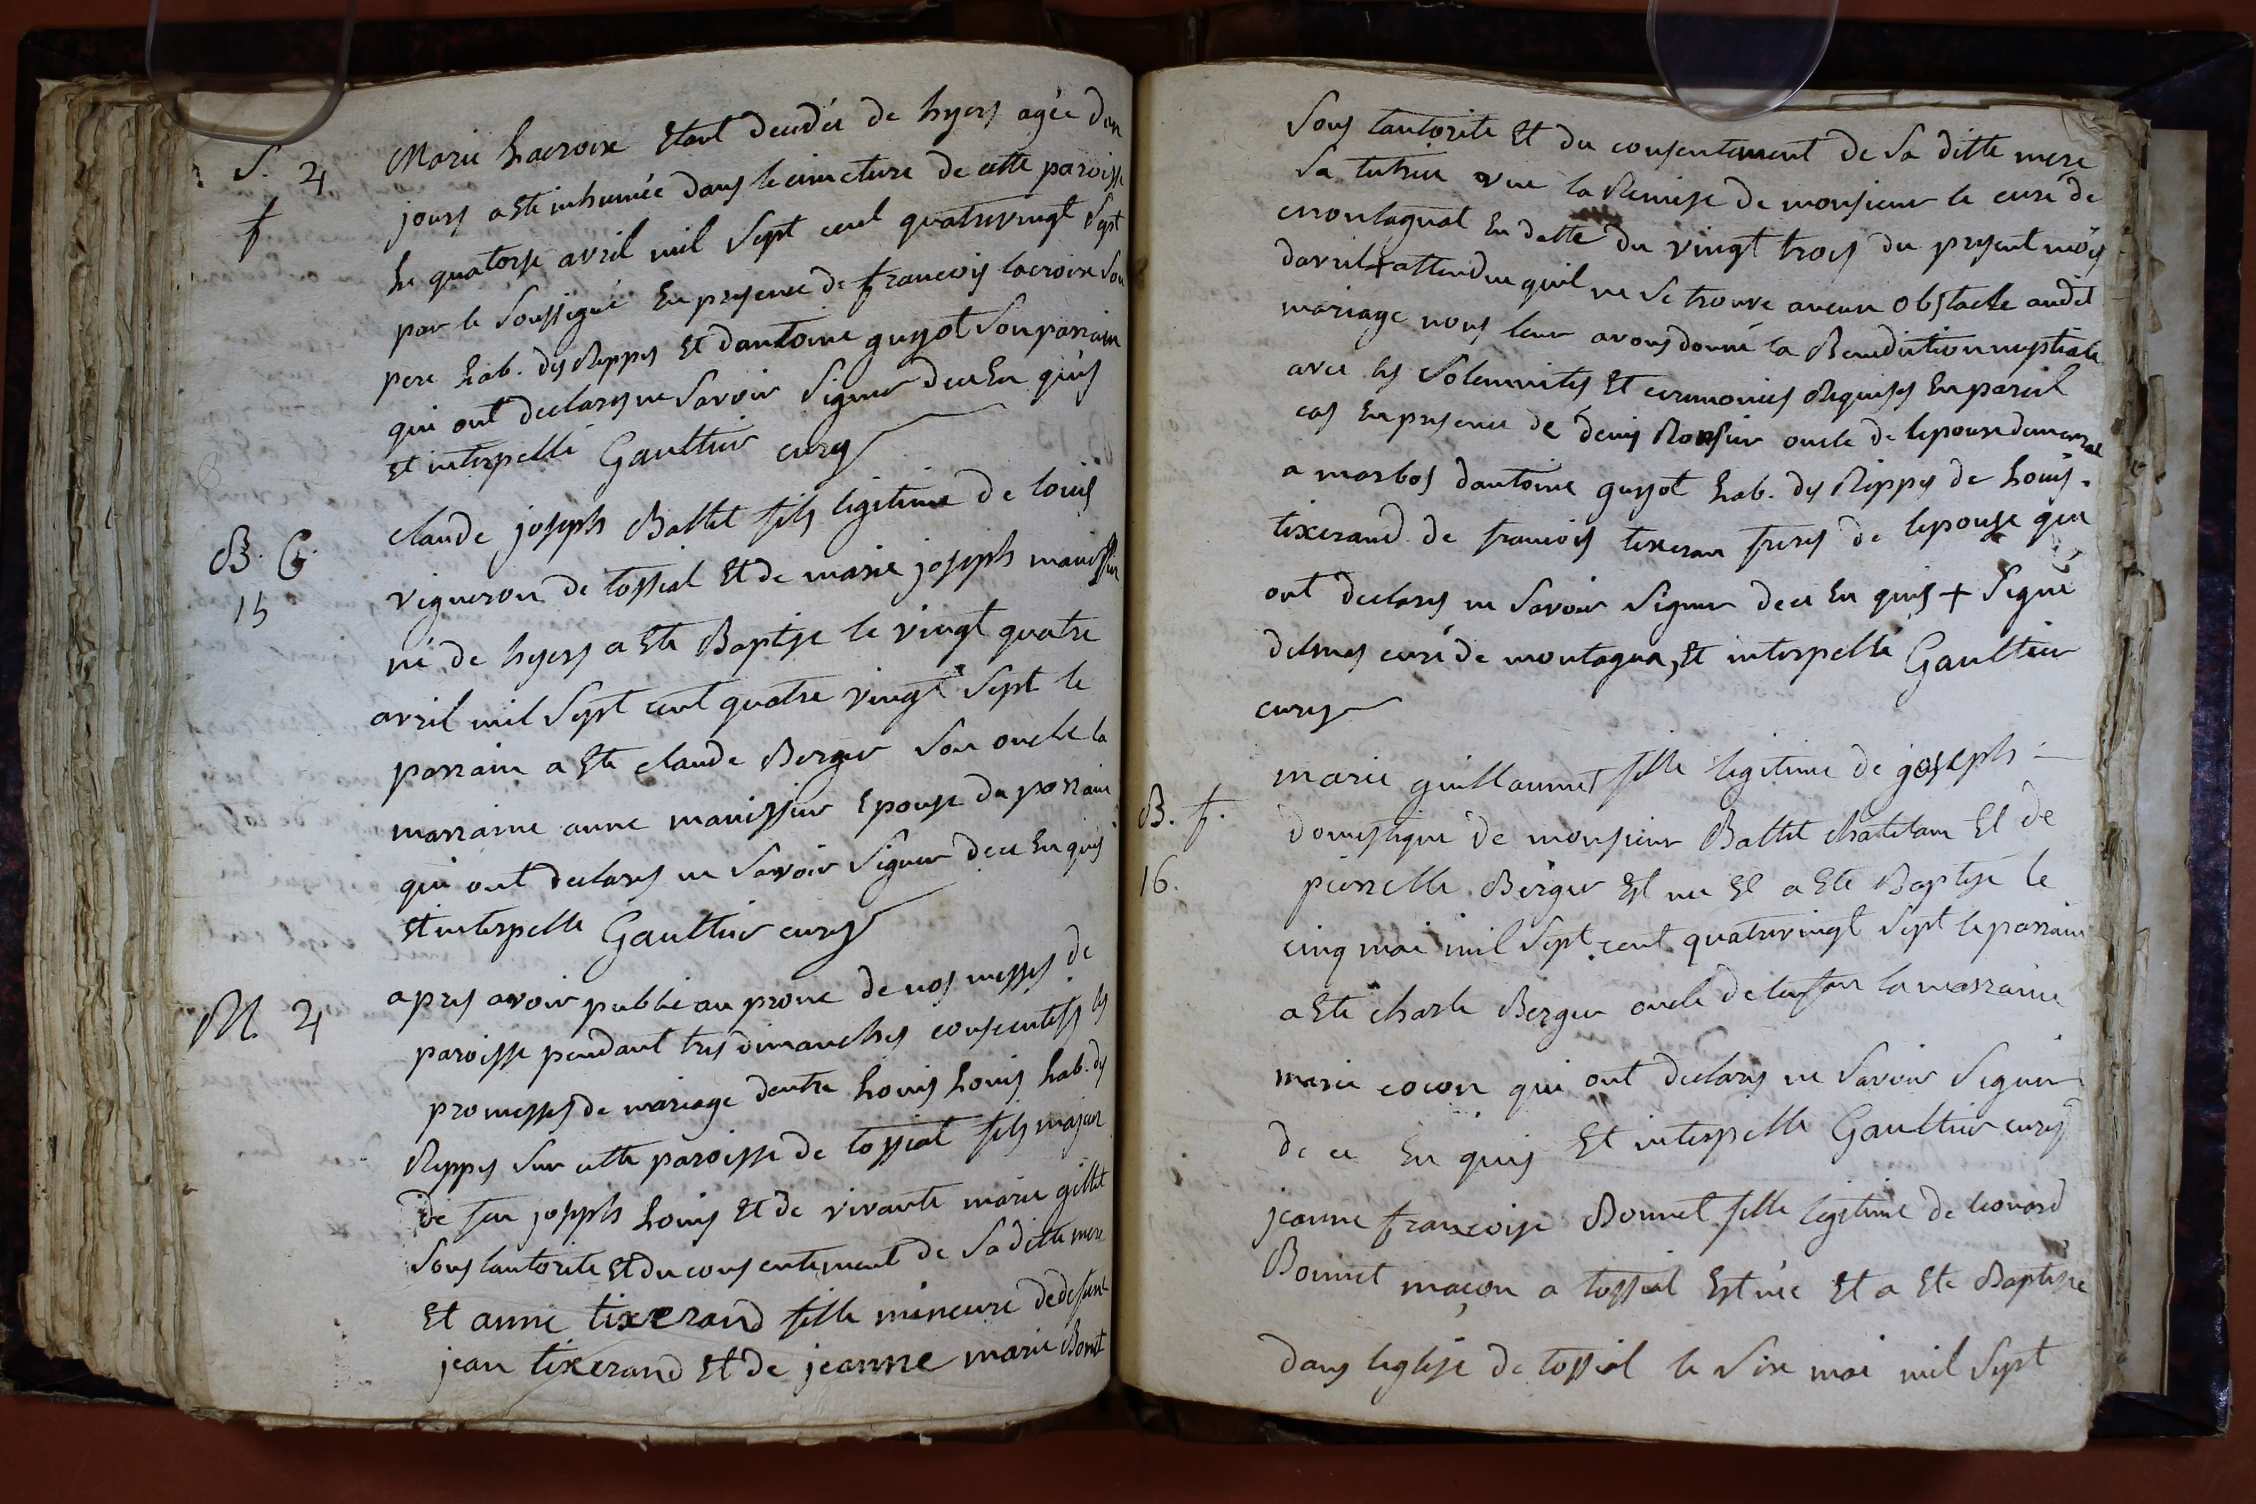 S. 4
f
Marie Lacroix Etant decedée de hyers agée de
jours a Ete inhumée dans le cimetiere de cette paroisse
Le quatorse avril mil Sept cent quatrevingt Sept
par le Soussigné En presence de francois lacroix Son
pere hab. des Rippes et dantoine guyot Son parrain
qui ont declares ne Savoir Signer de ce En quis
Et interpellé Gaultier curé
B. G.
15
claude joseph Battet fils legitime de louis
vigneron de tossiat Et de marie joseph manissier
né de hyers a Ete Baptise le vingt quatre
avril mil Sept cent quatre vingt Sept le
parrain a Ete claude Berger Son oncle la
marraine anne manissier Epouse du parrain
qui ont declares ne Savoir Signer de ce En quis
Et interpelle Gaultier curé
M. 4
apres avoir publié au prone de nos messes de
paroisse pendant tres dimanches consecutifs les
promesses de mariage dentre Louis Louis hab. des
Rippes Sur cette paroisse de tossiat fils majeur
de feu joseph Louis Et de vivante marie gillet
Sous lautorite Et du consentement de Sa ditte mere
Et anne tixerand fille mineure de defunt
jean tixerand Et de jeanne marie Bonet
Sous lautorite Et du consentement de Sa ditte mere
Sa tutrice vue la Remise de monsieur le curé de
montagnat En datte du vingt trois du present mois
davril + attendu quil ne Se trouve aucun obstacle audit
mariage nous leur avons donné la Benediction nuptiale
avec les Solemnites Et ceremonies Requises En pareil
cas En presence de denis oncle de lepouse demeurant
a marbos dantoine guyot hab. des Rippes de Louis
tixerand de francois tixeran freres de lepouse qui
ont declares ne Savoir Signer de ce En quis + Signé
delmas curé de montagna, Et interpellé Gaultier
curé
B. f.
16.
marie guillaumet fille legitime de joseph
domestique de monsieur Battet chatelain Et de
pierrette Berger Est nee Et a Ete Baptise le
cinq mai mil Sept cent quatrevingt Sept le parrain
a Ete charle Berger oncle de lenfan la marraine
marie cocon qui ont declares ne Savoir Signer
de ce En quis Et interpelle Gaultier curé
jeanne francoise Bonnet fille legitime de leonard
Bonnet maçon a tossiat Est née Et a Ete Baptisee
dans leglise de tossiat le Six mai mil Sept